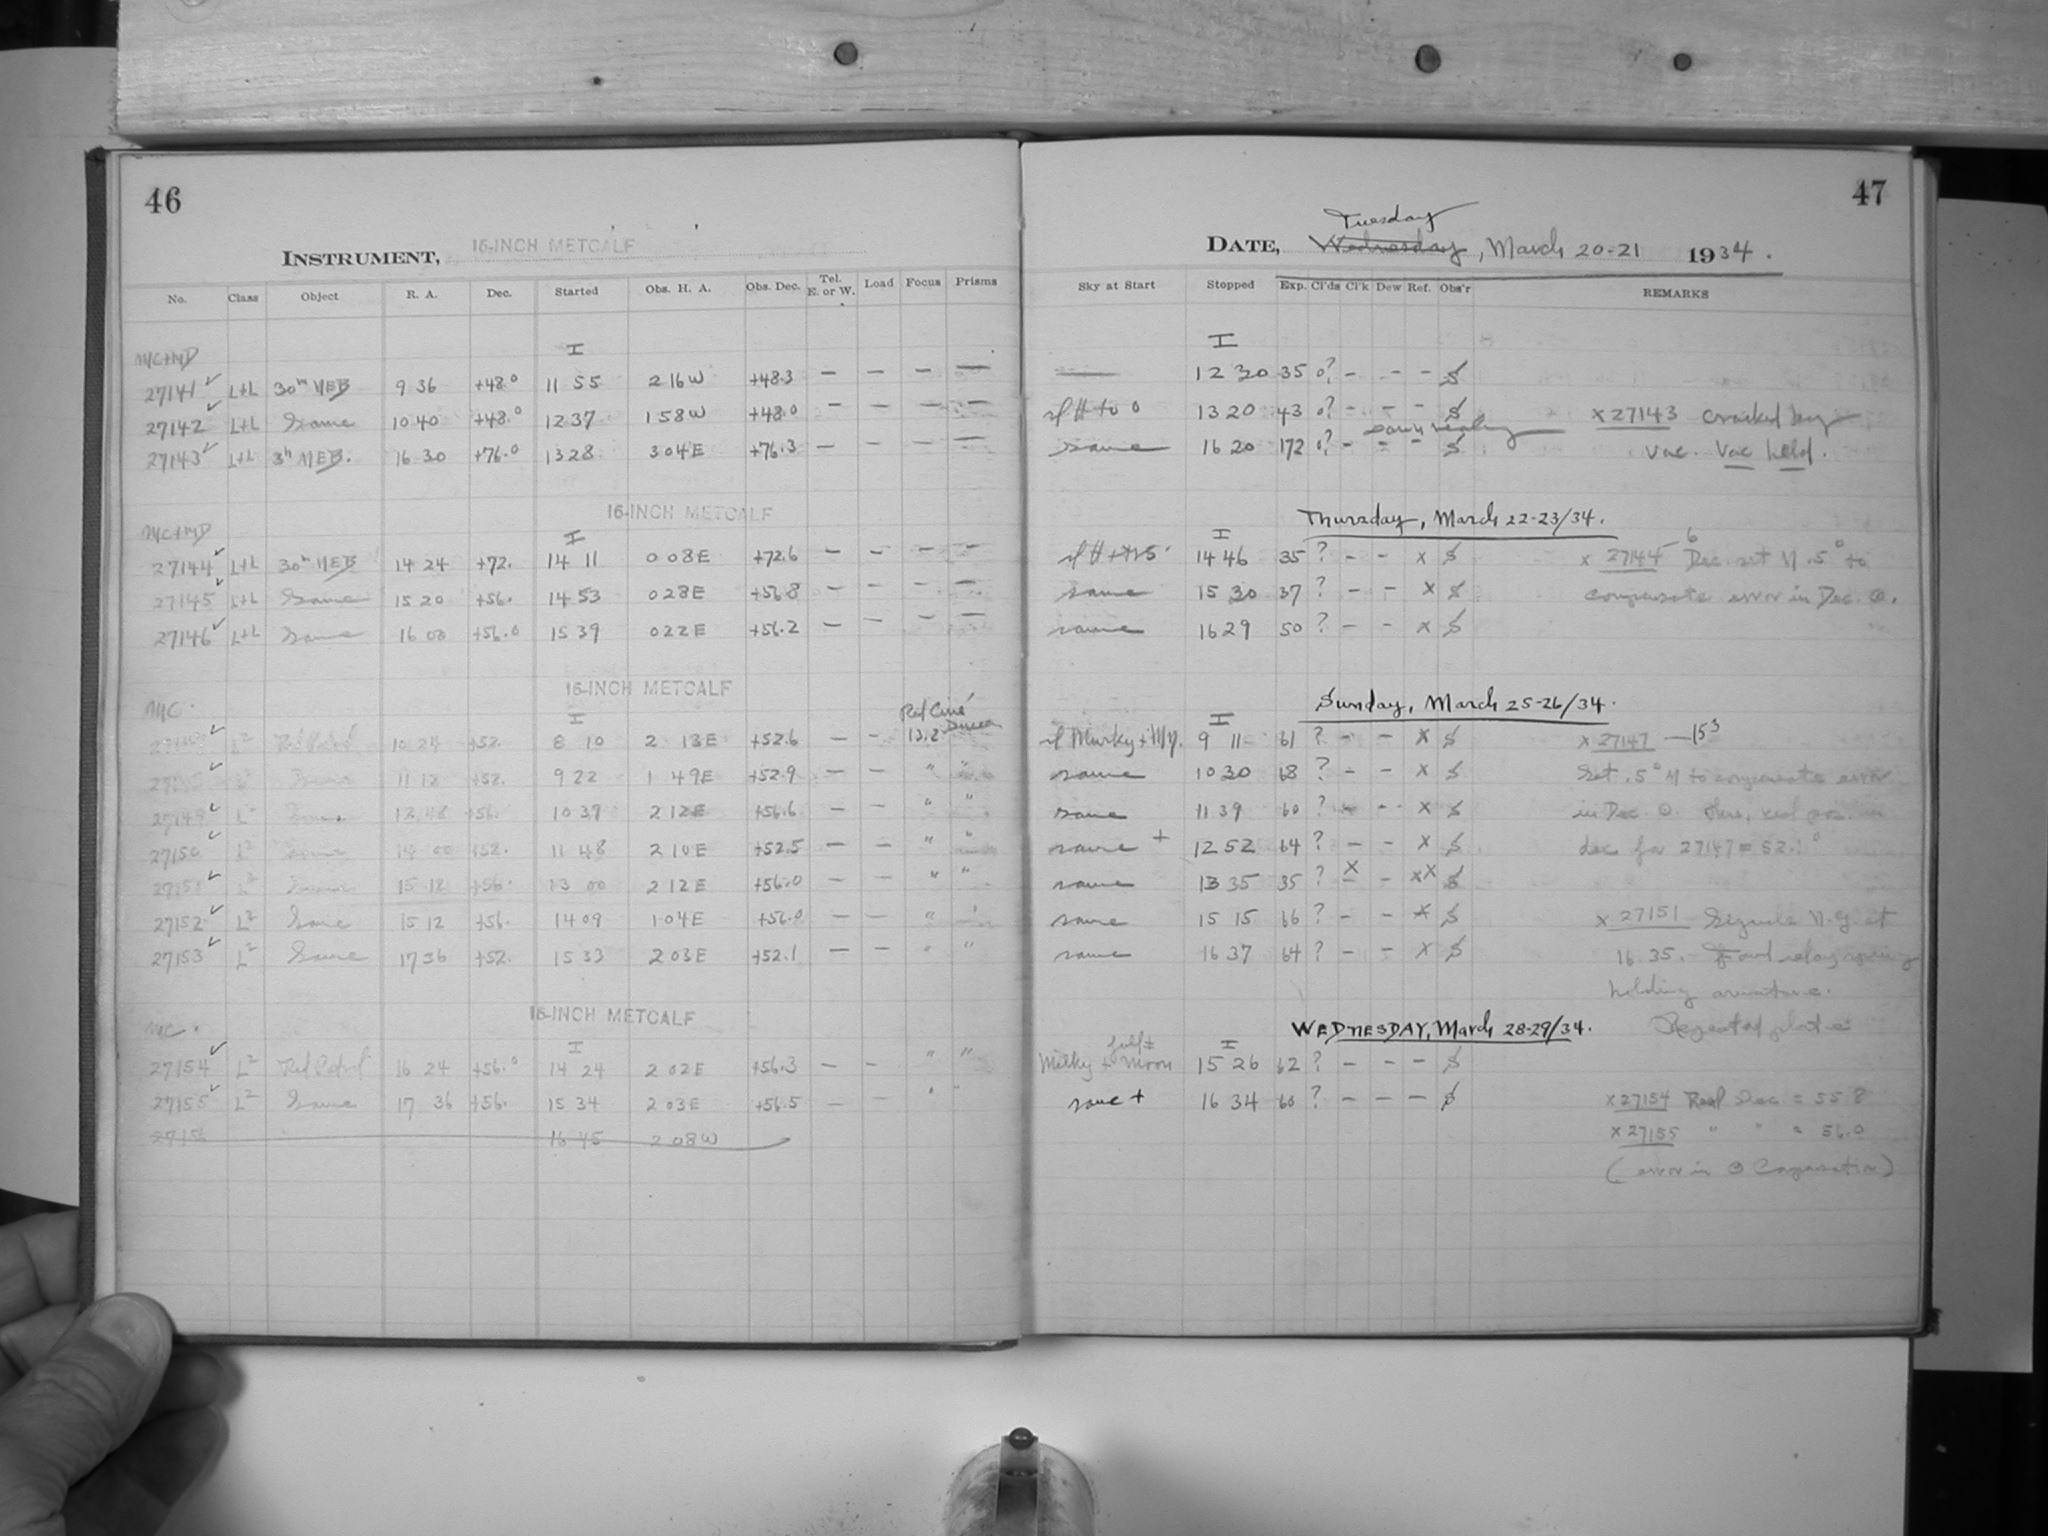 46
INSTRUMENT, 16-INCH METCALF
No. Class Object R. A. Dec. Started Obs. H. A. Obs. Dec. Tel. E. or W. Load Focus Prisms
I
MC+MD
27141 ✓ L+L 30m NEB 9 36 +48.0 11 55 2 16 W +48.3 — — — —
27142 ✓ L+L Same 10 40 +48.0 12 37 1 58 W +48.0 — — — —
27143 ✓ L+L 3h NEB. 16 30 +76.0 13 28 3 04 E +76.3 — — — —
16-INCH METCALF
MC+MD
I
27144 ✓ L+L 30m NEB 14 24 +72. 14 11 0 08 E +72.6 — — — —
27145 ✓ L+L Same 15 20 +56. 14 53 0 28 E +56.8 — — — —
27146 ✓ L+L Same 16 00 +56.0 15 39 0 22 E +56.2 — — — —
16-INCH METCALF
MC.
I
Red Ciné
27147 ✓ L2 Red Patrol 10 24 +52. 8 10 2 13 E +52.6 — — 13.2
27148 ✓ L2 Same 11 12 +52. 9 22 1 49 E +52.9 — — " "
27149 ✓ L2 Same 12 48 +56. 10 39 2 12 E +56.6 — — " "
27150 ✓ L2 Same 14 00 +52. 11 48 2 10 E +52.5 — — " "
27151 ✓ L2 Same 15 12 +56. 13 00 2 12 E +56.0 — — " "
27152 ✓ L2 Same 15 12 +56. 14 09 1 04 E +56.0 — — " "
27153 ✓ L2 Same 17 36 +52. 15 33 2 03 E +52.1 — — " "
16-INCH METCALF
MC.
I
27154 ✓ L2 Red Patrol 16 24 +56.0 14 24 2 02 E +56.3 — — " "
27155 ✓ L2 Same 17 36 +56. 15 34 2 03 E +56.5 — — " "
27156 16 45 2 08 W
47
Tuesday
DATE, Wednesday, March 20-21 1934.
Sky at Start Stopped Exp. Cl'ds Cl'k Dew Ref. Obs'r REMARKS
I
— 12 30 35 0? — — — S
sl H to 0 13 20 43 0? — — — S x 27143 cracked by
same 16 20 172 0? — — — S vac. Vac held.
Thursday, March 22-23/34.
I
14 46 35 ? — — x S x 27144-6 Dec. set N .5° to
same 15 30 37 ? — — x S compensate error in Dec. ⊙.
same 16 29 50 ? — — x S
Sunday, March 25-26/34.
I
sl Murky + 9 11 61 ? — — x S x 27147 — 153
same 10 30 68 ? — — x S Set .5° N to compensate error
same 11 39 60 ? — — x S in Dec. ⊙. Thus, real pos. in
same + 12 52 64 ? — — x S dec for 27147 = 52.1°
same 13 35 35 ? x — xx S
same 15 15 66 ? — — x S x 27151 Signals N.G. at
same 16 37 64 ? — — x S 16 35. Found relay spring
holding armature.
WEDNESDAY, March 28-29/34. Repeated plate
I
Milky + Moon 15 26 62 ? — — — S
same + 16 34 60 ? — — — S x 27154 Real Dec. = 55.8
x 27155 " " = 56.0
(error in ⊙ Compensation)